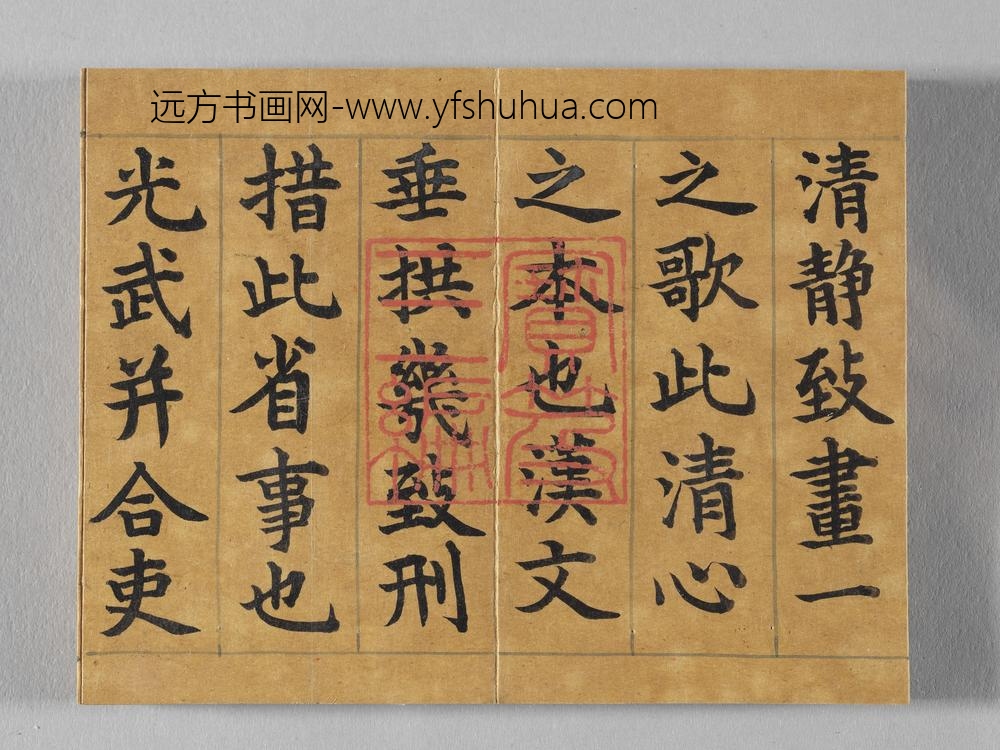 远方书画网-www.yfshuhua.com
清静致畫一
之歌此清心
之本也漢文
垂拱幾致刑
措此省事也
光武并合吏